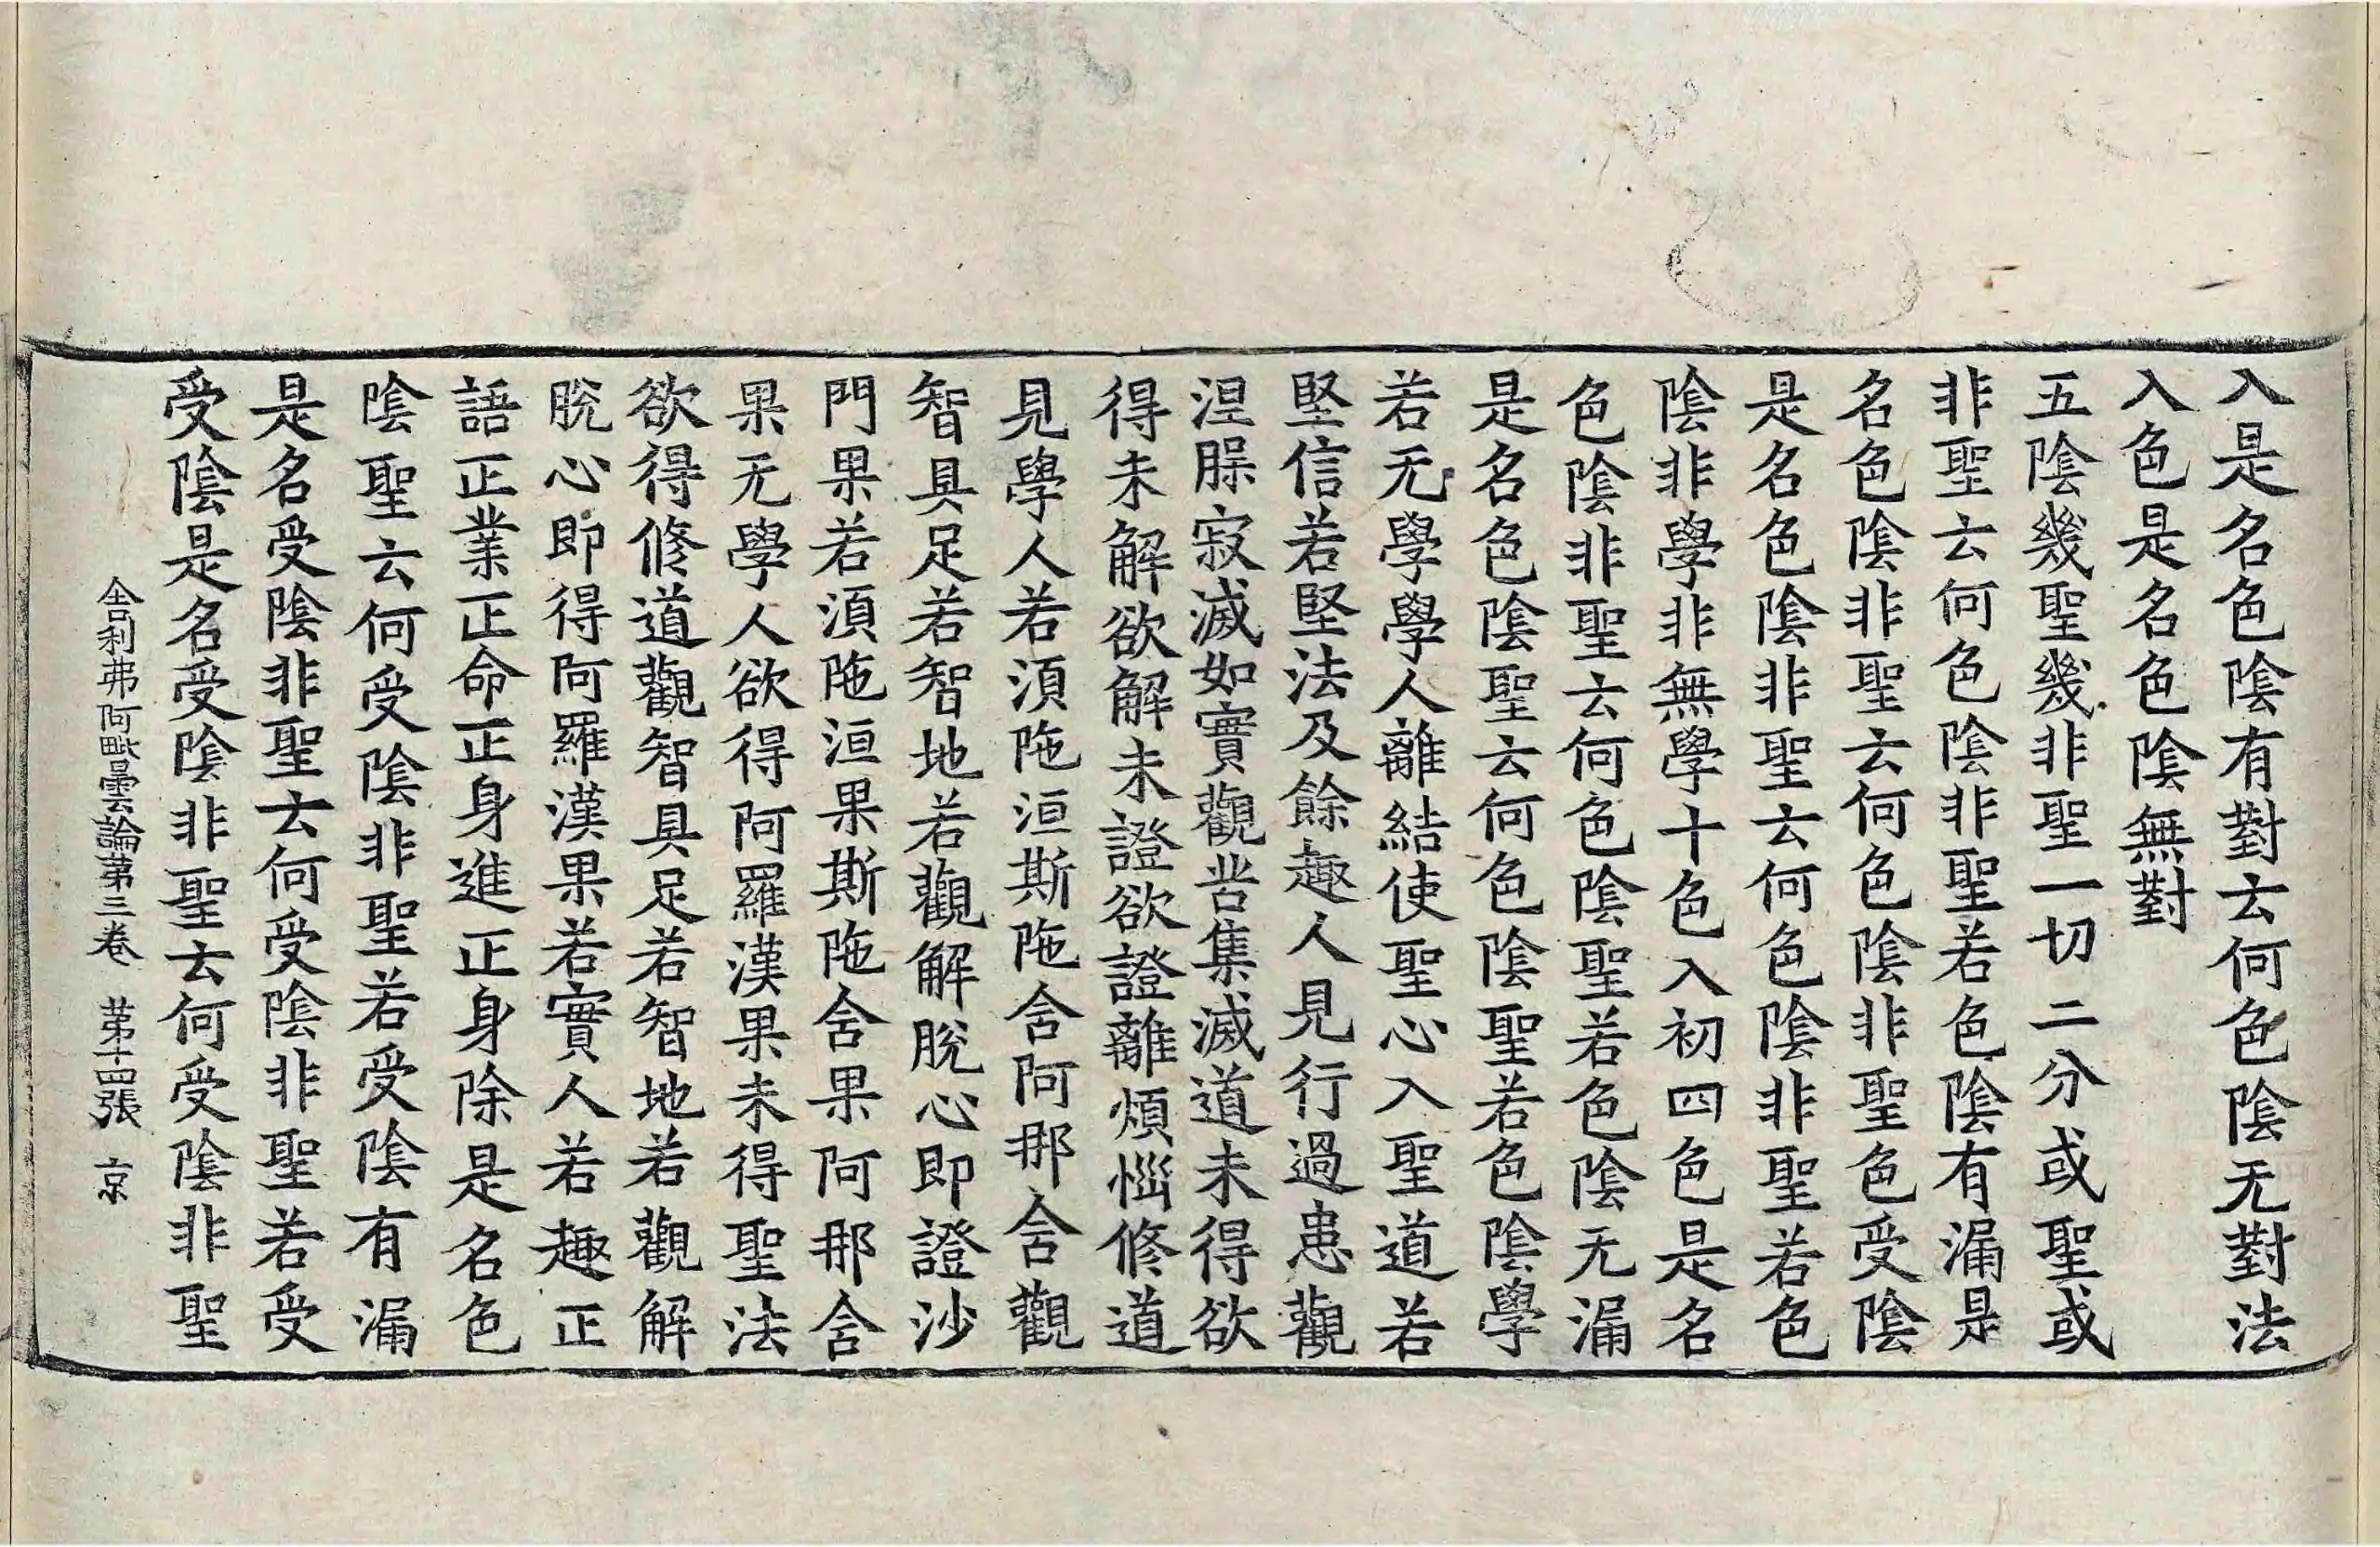 入是名色陰有對云何色陰无對法
入色是名色陰無對
五陰幾聖幾非聖一切二分或聖或
非聖云何色陰非聖若色陰有漏是
名色陰非聖云何色陰非聖色受陰
是名色陰非聖云何色陰非聖若色
陰非學非無學十色入初四色是名
色陰非聖云何色陰聖若色陰无漏
是名色陰聖云何色陰聖若色陰學
若无學學人離結使聖心入聖道若
堅信若堅法及餘趣人見行過患觀
涅槃寂滅如實觀苦集滅道未得欲
得未解欲解未證欲證離煩惱修道
見學人若須陁洹斯陁舍阿那舍觀
智具足若智地若觀解脫心即證沙
門果若須陁洹果斯陁舍果阿那舍
果无學人欲得阿羅漢果未得聖法
欲得修道觀智具足若智地若觀解
脫心即得阿羅漢果若實人若趣正
語正業正命正身進正身除是名色
陰聖云何受陰非聖若受陰有漏
是名受陰非聖云何受陰非聖若受
受陰是名受陰非聖云何受陰非聖
舍利弗阿毗曇論第三卷 第十四張 京